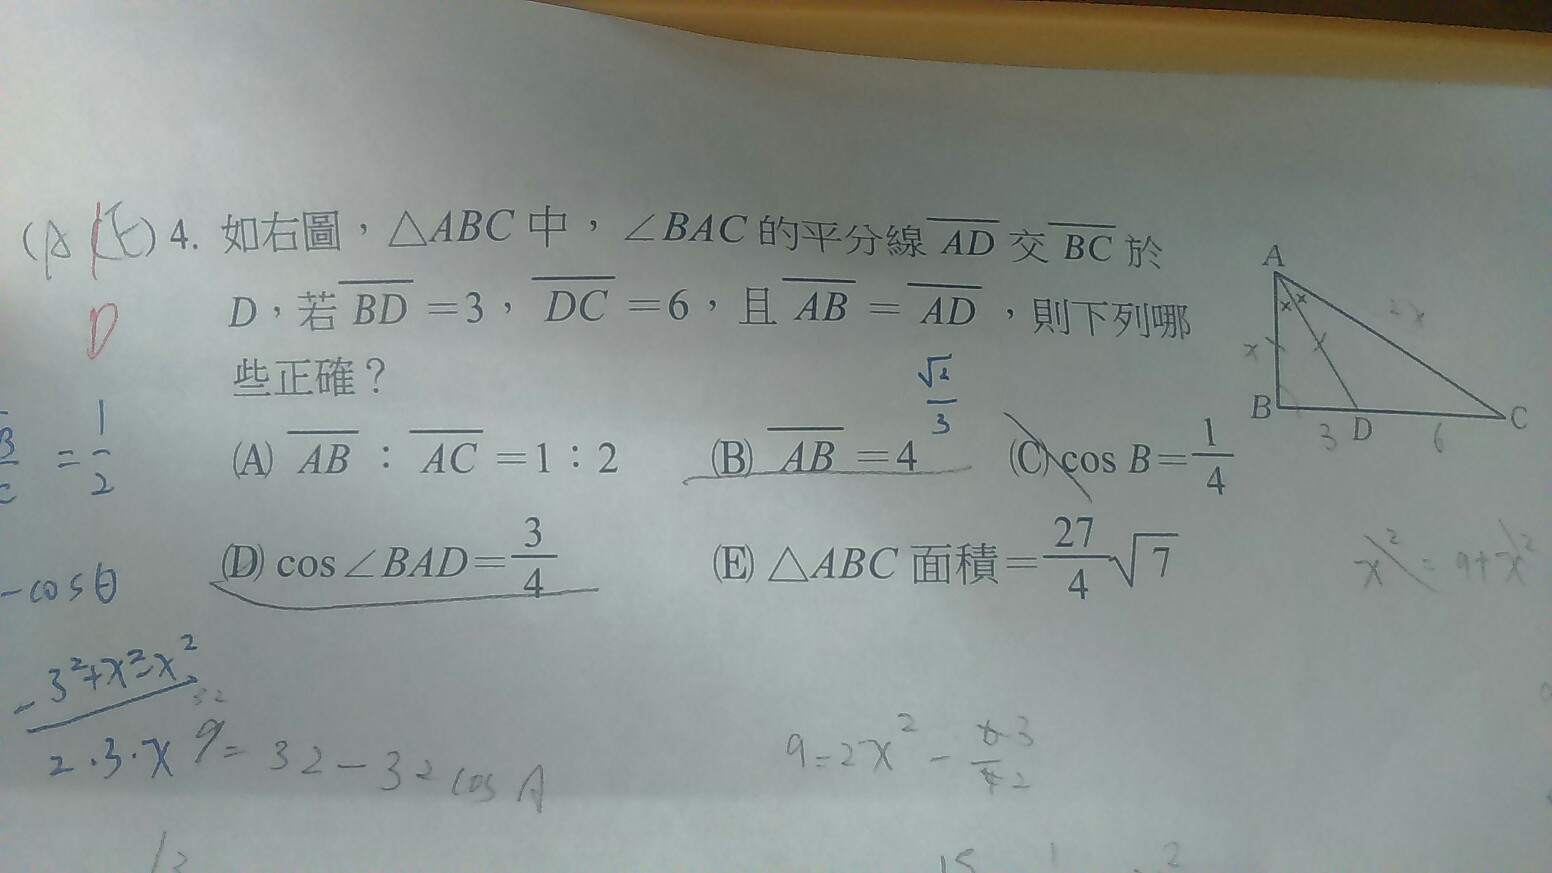 (A E) 4. 如右圖，△ABC 中，∠BAC 的平分線 AD 交 BC 於
D
D，若 BD =3， DC =6，且 AB = AD ，則下列哪
些正確？
(A) AB : AC =1：2
(B) AB =4
(C) cos B= 1/4
(D) cos∠BAD= 3/4
(E) △ABC 面積= 27/4 √7
A
B
D
C
x
2x
3
6
= 1/2
√2/3
-cosθ
3²+x²-x²
2·3·x
9= 32-32 cos A
9=2x² -
x² = 9+x²